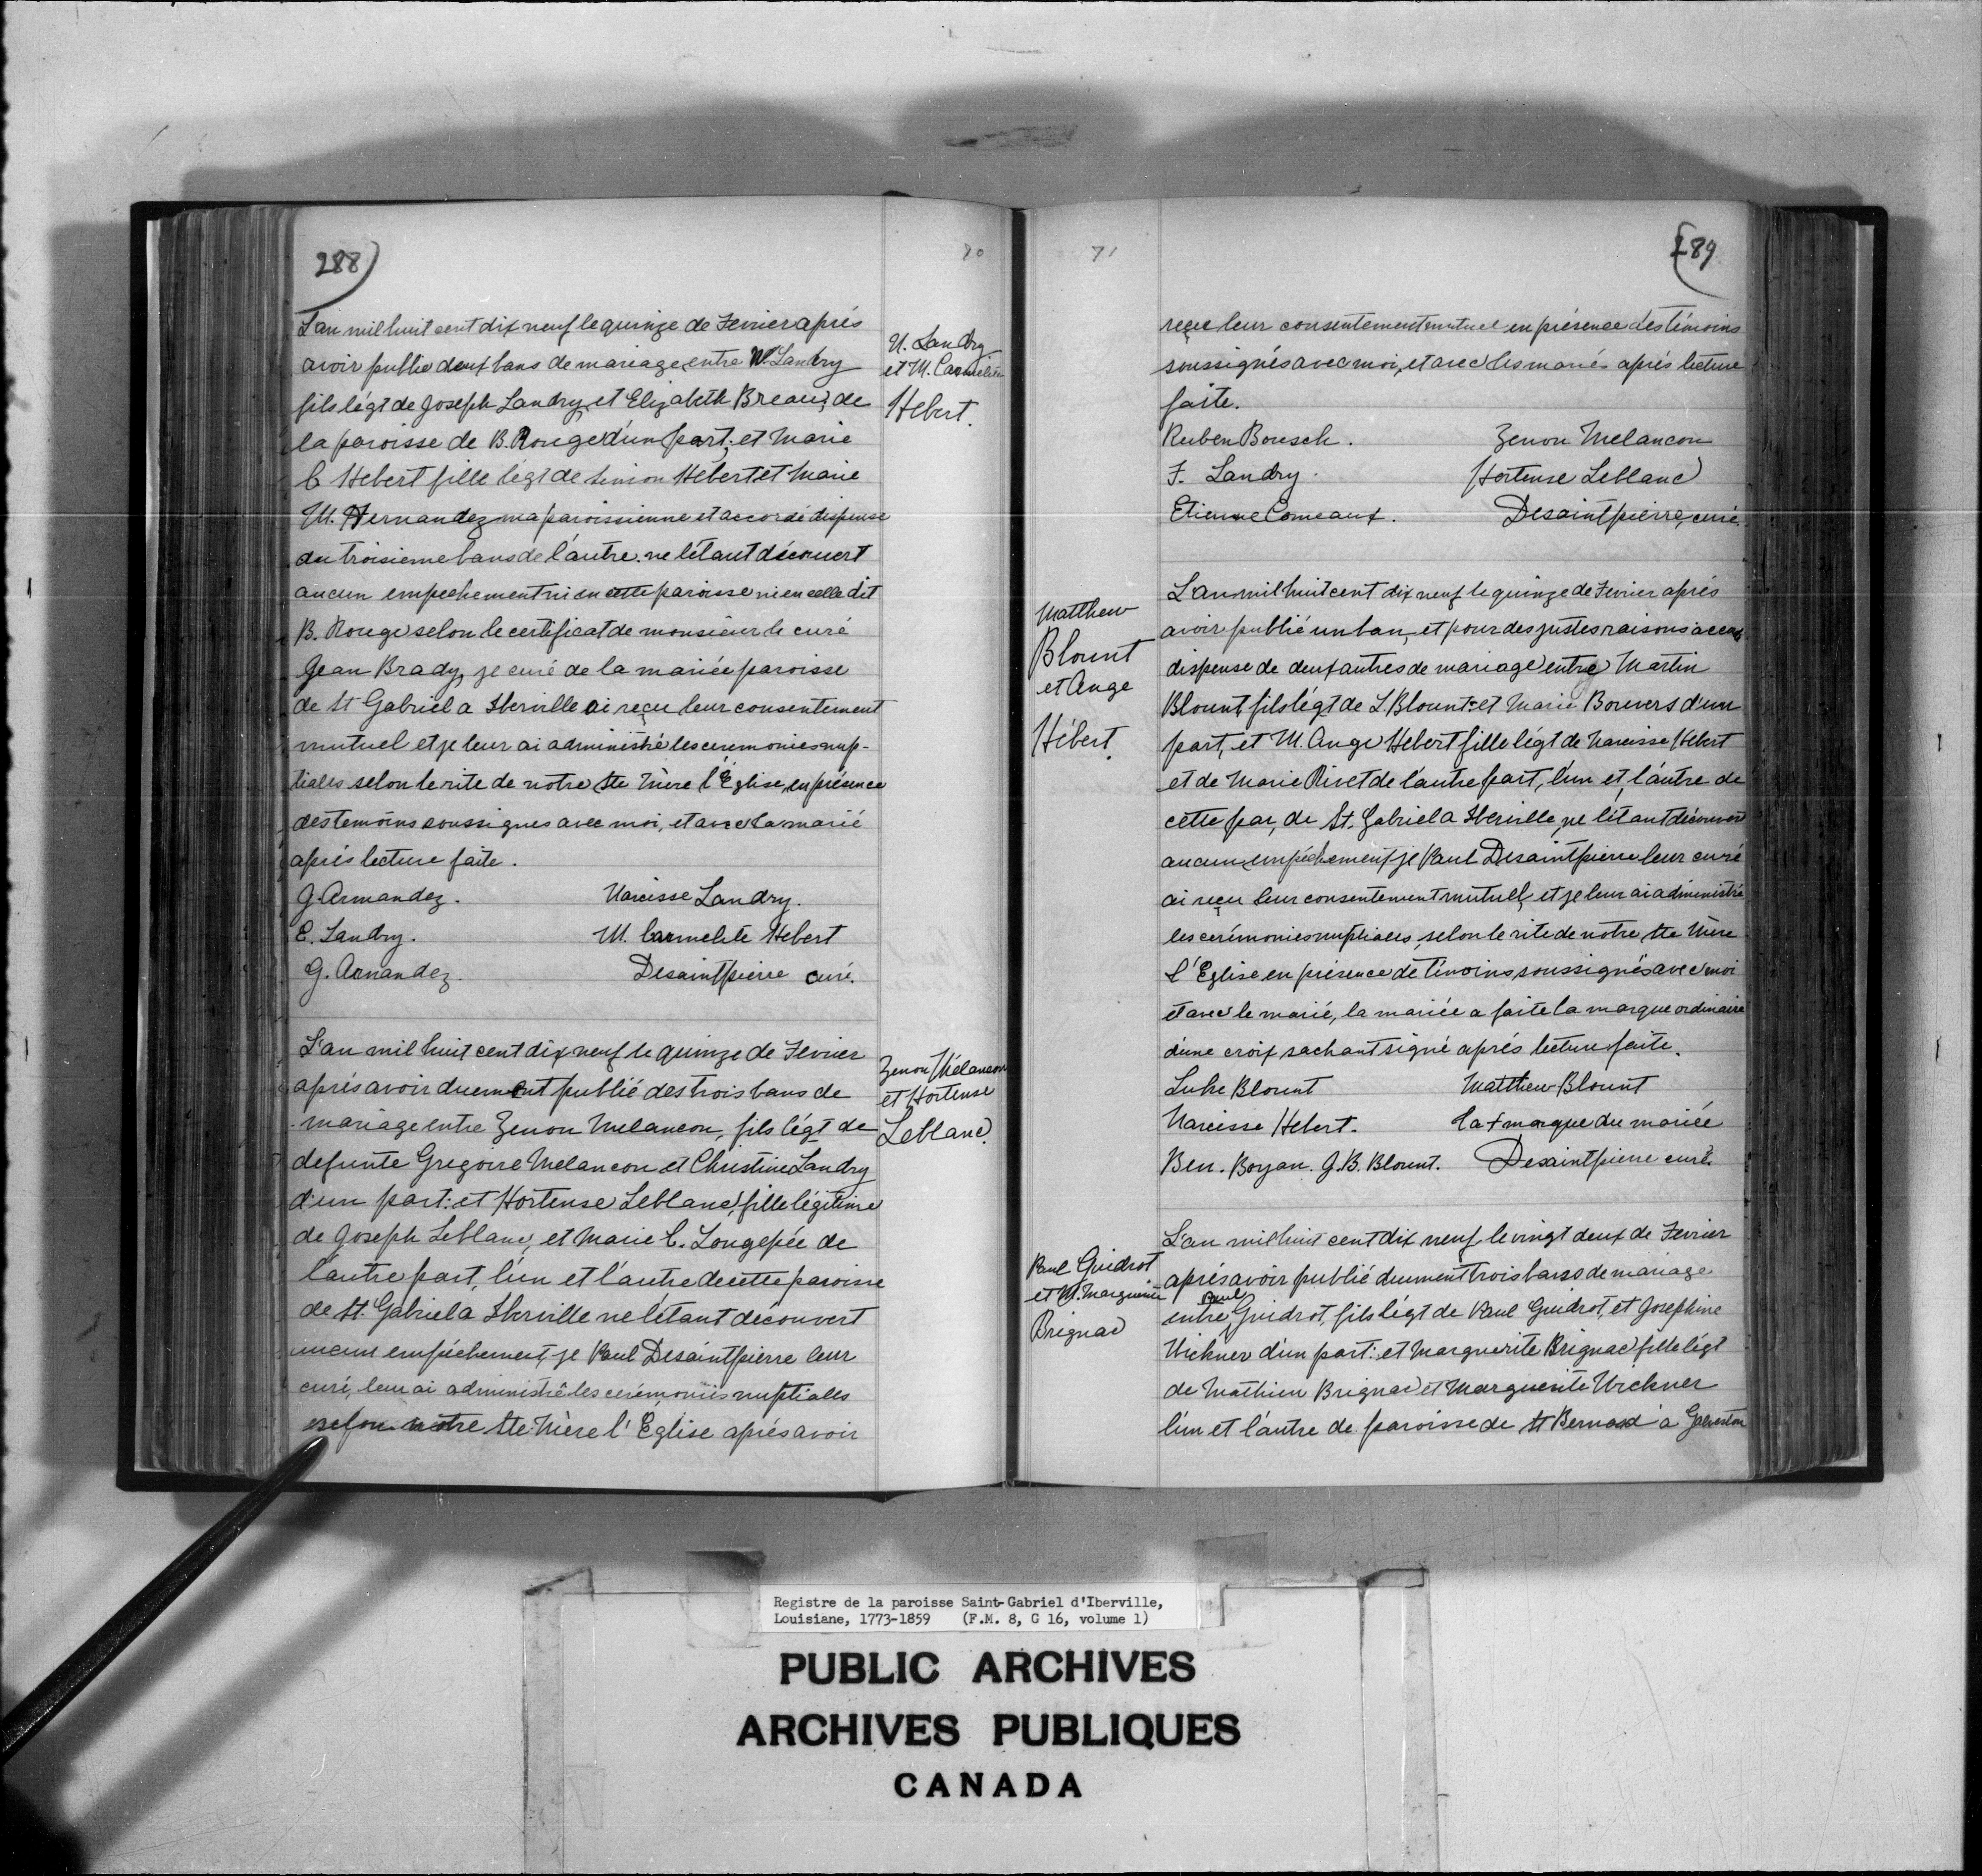 288)
70
L'an mil huit cent dix neuf le quinze de Fevrier aprés
avoir publie deux bans de mariage entre N. Landry
fils légt de Joseph Landry et Elizabeth Breau, de
la paroisse de B. Rouge d'un part; et Marie
C Hebert fille légt de Simon Hébert et Marie
M. Hernandez ma paroissienne et accordé dispense
du troisieme bans de l'autre. ne létant découvert
aucun empechement ni en cette paroisse ni en celle dit
B. Rouge selon le certificat de monsieur le curé
Jean Brady, je curé de la mariée paroisse
de St Gabriel a Iberville ai reçu leur consentement
mutuel et je leur ai administré les ceremonies nup-
tialles selon le rite de notre Ste Mère l'Église, en présence
des temoins soussignes avec moi, et avec la marié
aprés lecture faite.
G. Armandez. Narcisse Landry.
E. Landry. M. Carmelite Hebert
G. Arnandez. Desaintpierre curé.
N. Landry
et M. Carmelite
Hebert.
L'an mil huit cent dix neuf le quinze de Fevrier
aprés avoir duement publié des trois bans de
mariage entre Zenon Melancon, fils légt de
defunte Gregoire Melancon et Christine Landry
d'un part: et Hortense Leblanc, fille légitime
de Joseph Leblanc, et Marie C. Longepée de
l'autre part, l'un et l'autre de cette paroisse
de St. Gabriel a Iberville ne létant découvert
aucun empéchement, je Paul Desaintpierre leur
curé, leur ai administré les cerémonies nuptialles
selon notre Ste. Mère l'Église aprés avoir
Zenon Mélancon
et Hortense
Leblanc.
71
289
reçu leur consentement mutuel en présence des témoins
soussignés avec moi, et avec les mariés aprés lecture
faite.
Reuben Bousch. Zenon Melancon
F. Landry. Hortense Leblanc
Etienne Comeaux. Desaintpierre, curé.
Matthew
Blount
et Ange
Hébert.
L'an mil huit cent dix neuf le quinze de Fevrier aprés
avoir publié un ban, et pour des justes raisons accordé
dispense de deux autres de mariage entre Martin
Blount, fils légt de L. Blount et Marie Bouvers d'un
part, et M. Ange Hébert fille légt de Narcisse Hébert
et de Marie Rivet de l'autre part, l'un et l'autre de
cette par, de St. Gabriel a Iberville, ne létant découvert
aucun empéchement je Paul Desaintpierre leur curé
ai reçu leur consentement mutuel, et je leur ai administré
les cerémonies nuptiales, selon le rite de notre Ste Mère
l'Eglise en présence de témoins soussignés avec moi
et avec le marié, la mariée a faite la marque ordinaire
d'une croix sachant signé aprés lecture faite.
Luke Blount Matthew Blount
Narcisse Hebert. la + marque du mariée
Ben. Boyan. J.B. Blount. Desaintpierre curé.
Paul Guidrot
et M. Marguerite
Brignac
L'an mil huit cent dix neuf le vingt deux de Fevrier
aprés avoir publié duement trois bans de mariage
entre Paul Guidrot, fils légt de Paul Guidrot, et Josephine
Wickner d'un part: et Marguerite Brignac fille légt
de Mathieu Brignac et Marguerite Wickner
l'un et l'autre de paroisse de St Bernard à Galveston
Registre de la paroisse Saint-Gabriel d'Iberville,
Louisiane, 1773-1859 (F.M. 8, G 16, volume 1)
PUBLIC ARCHIVES
ARCHIVES PUBLIQUES
CANADA